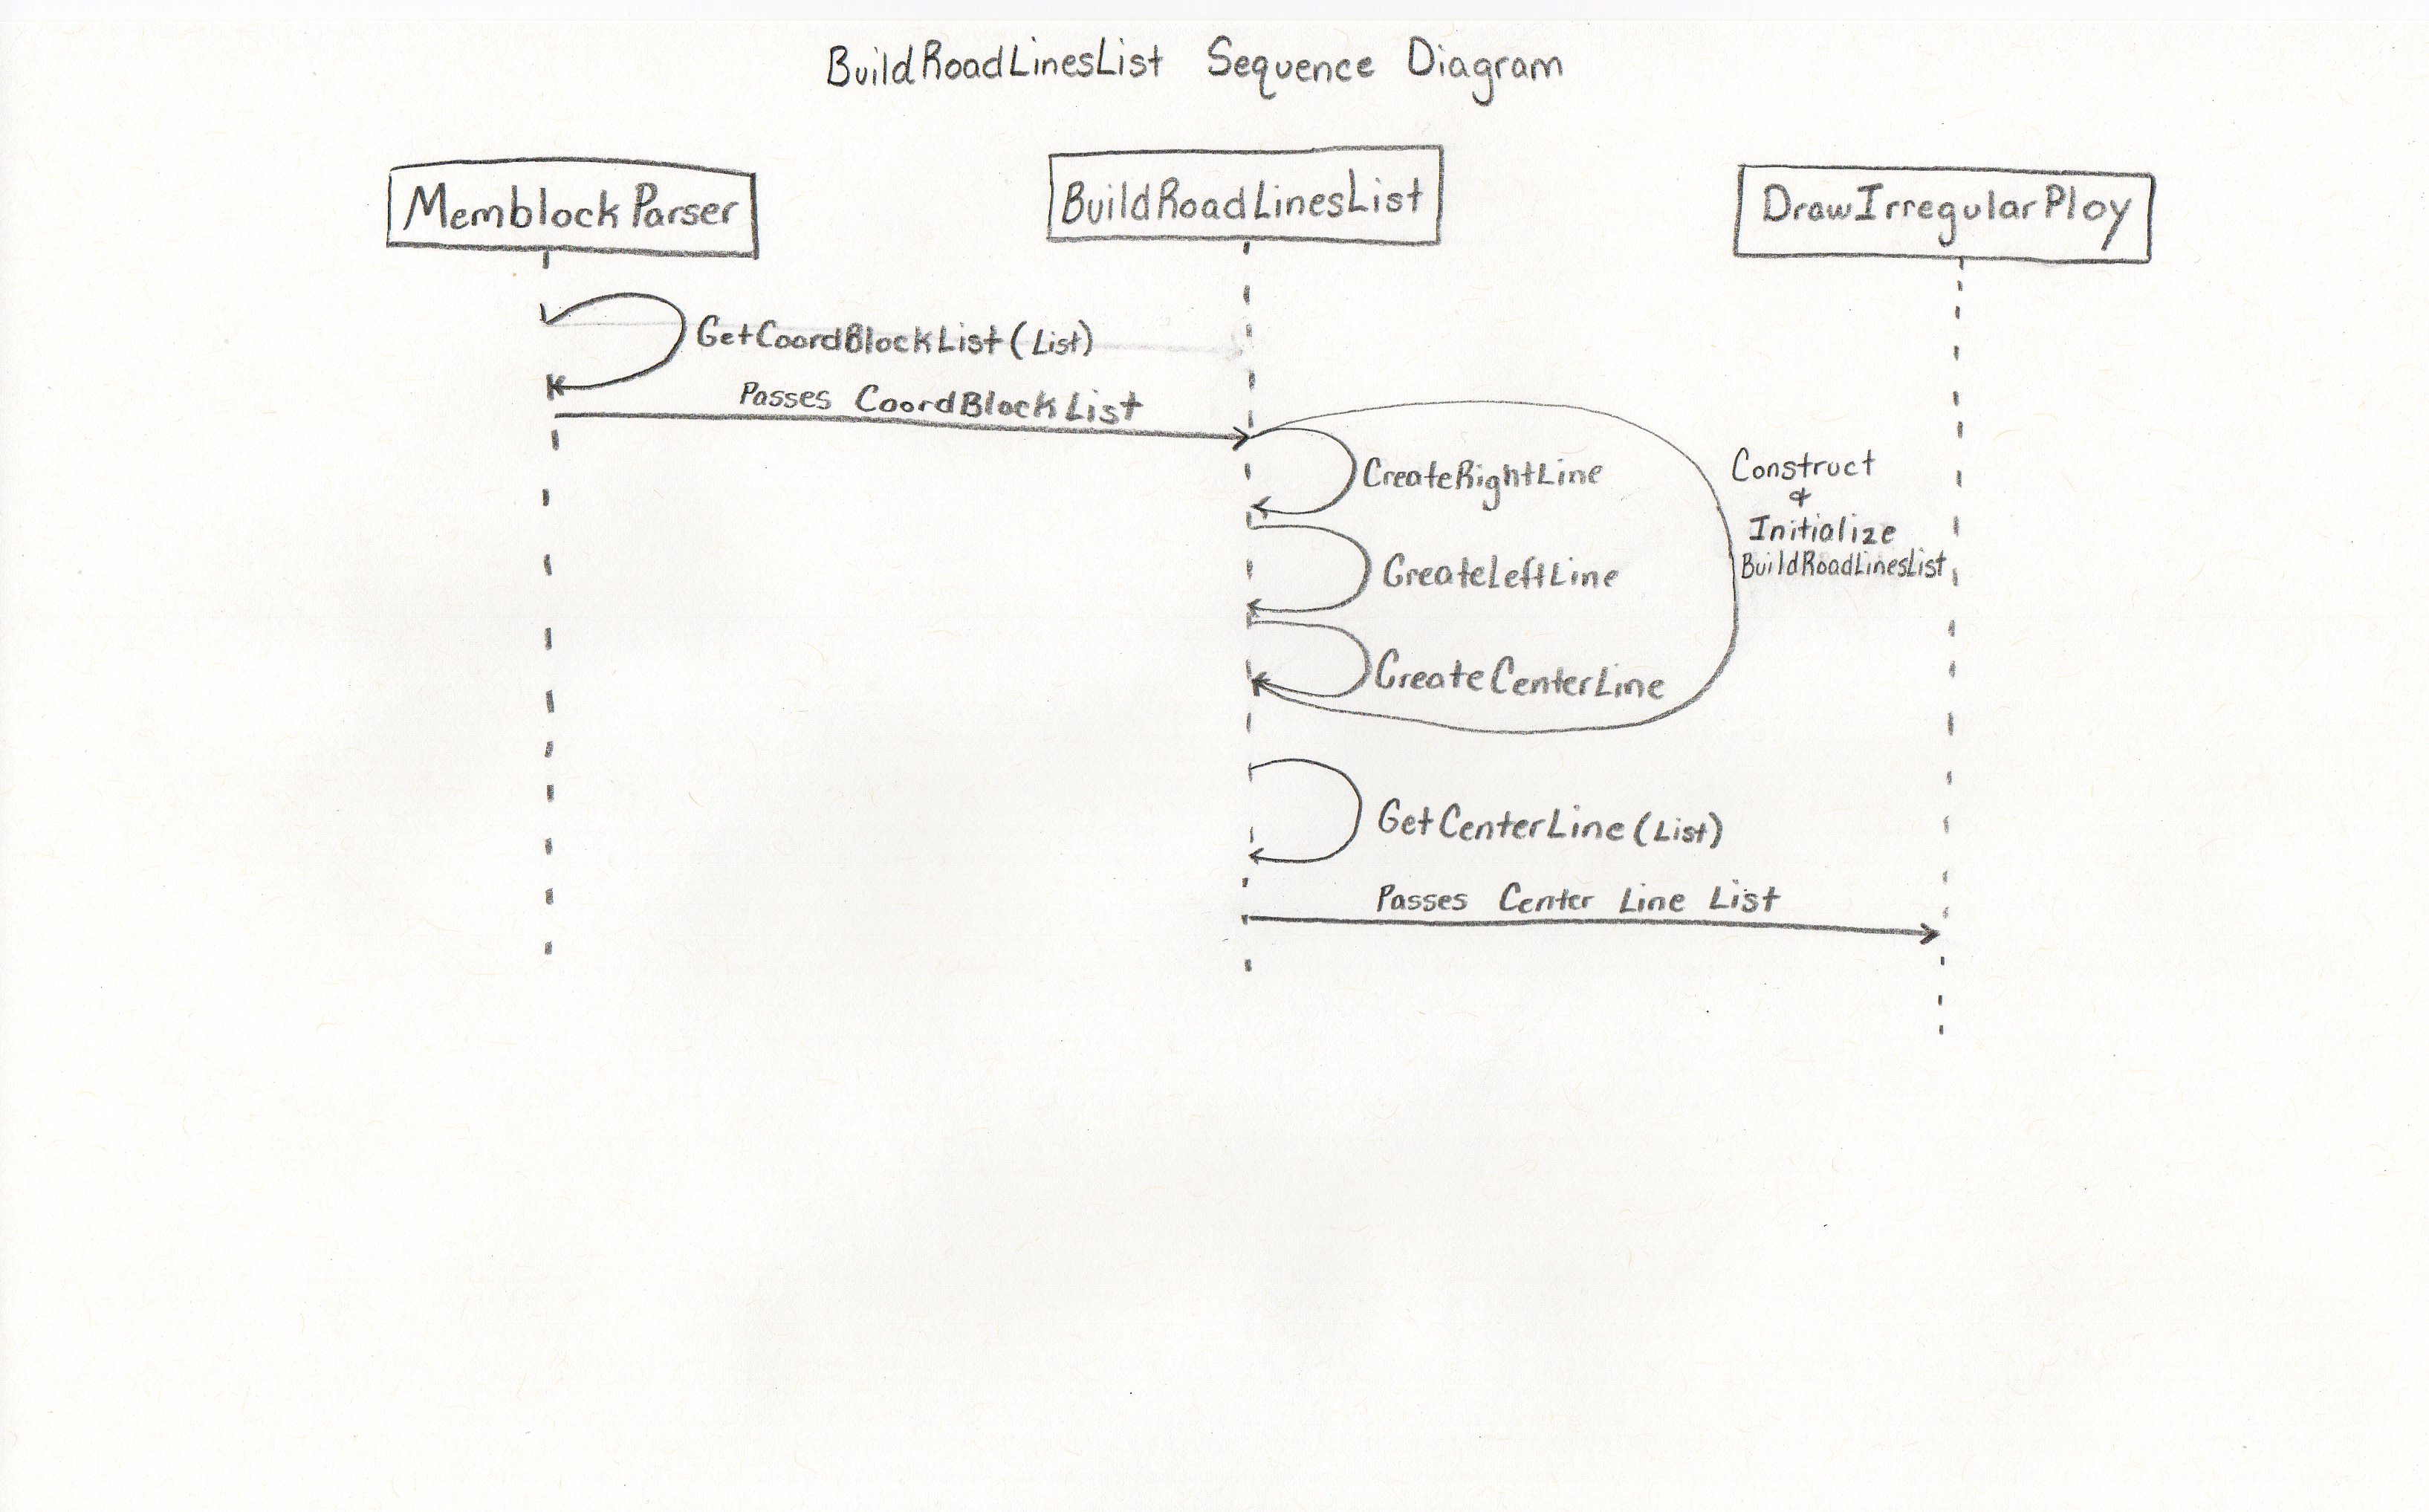 BuildRoadLinesList Sequence Diagram
MemblockParser
BuildRoadLinesList
DrawIrregularPloy
GetCoordBlockList (List)
Passes CoordBlockList
CreateRightLine
CreateLeftLine
CreateCenterLine
Construct
&
Initialize
BuildRoadLinesList
GetCenterLine (List)
Passes Center Line List